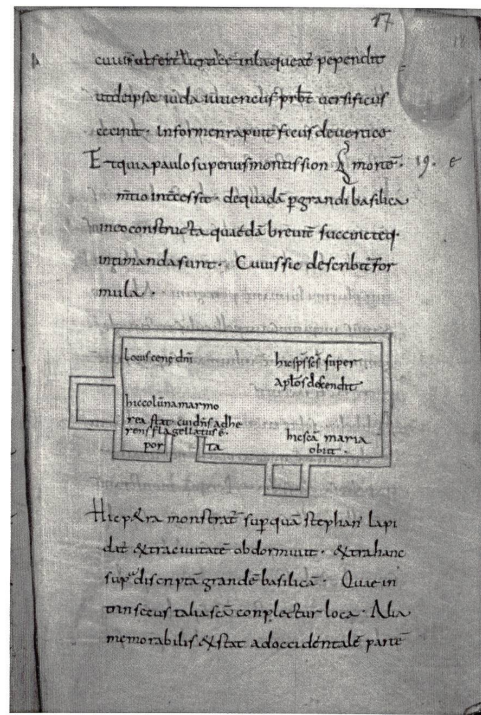 17
ut de ipso iuda iuuencus prbt̄ uersificus
cecinit · informem rapuit ficus de uertice
Et quia paulo superius montis sion mortē · 19. e
m̄tio int̄cessit · de quadā p̱grandi basilica
in eo constructa quaedā breuit̄ succincteq·
intimanda sunt · Cuius sic describit̄ for
mula ·
locus cene dn̄i
hic sp̄s sc̄s super
aplōs descendit
hic colūna marmo
rea stat cui dn̄s adhe
rens flagellatus ē ·
por ta
hic sc̄a maria
obiit ·
Hic petra monstrat̄ sup̱ quā stephan' lapi
dat' extra ciuitatē obdormiuit · extra hanc
sup̱ᵃ discriptā grandē basilicā · Quae in
trinsecus talia sc̄a conplectitur loca · Alia
memorabilis exstat ad occidentalē partē